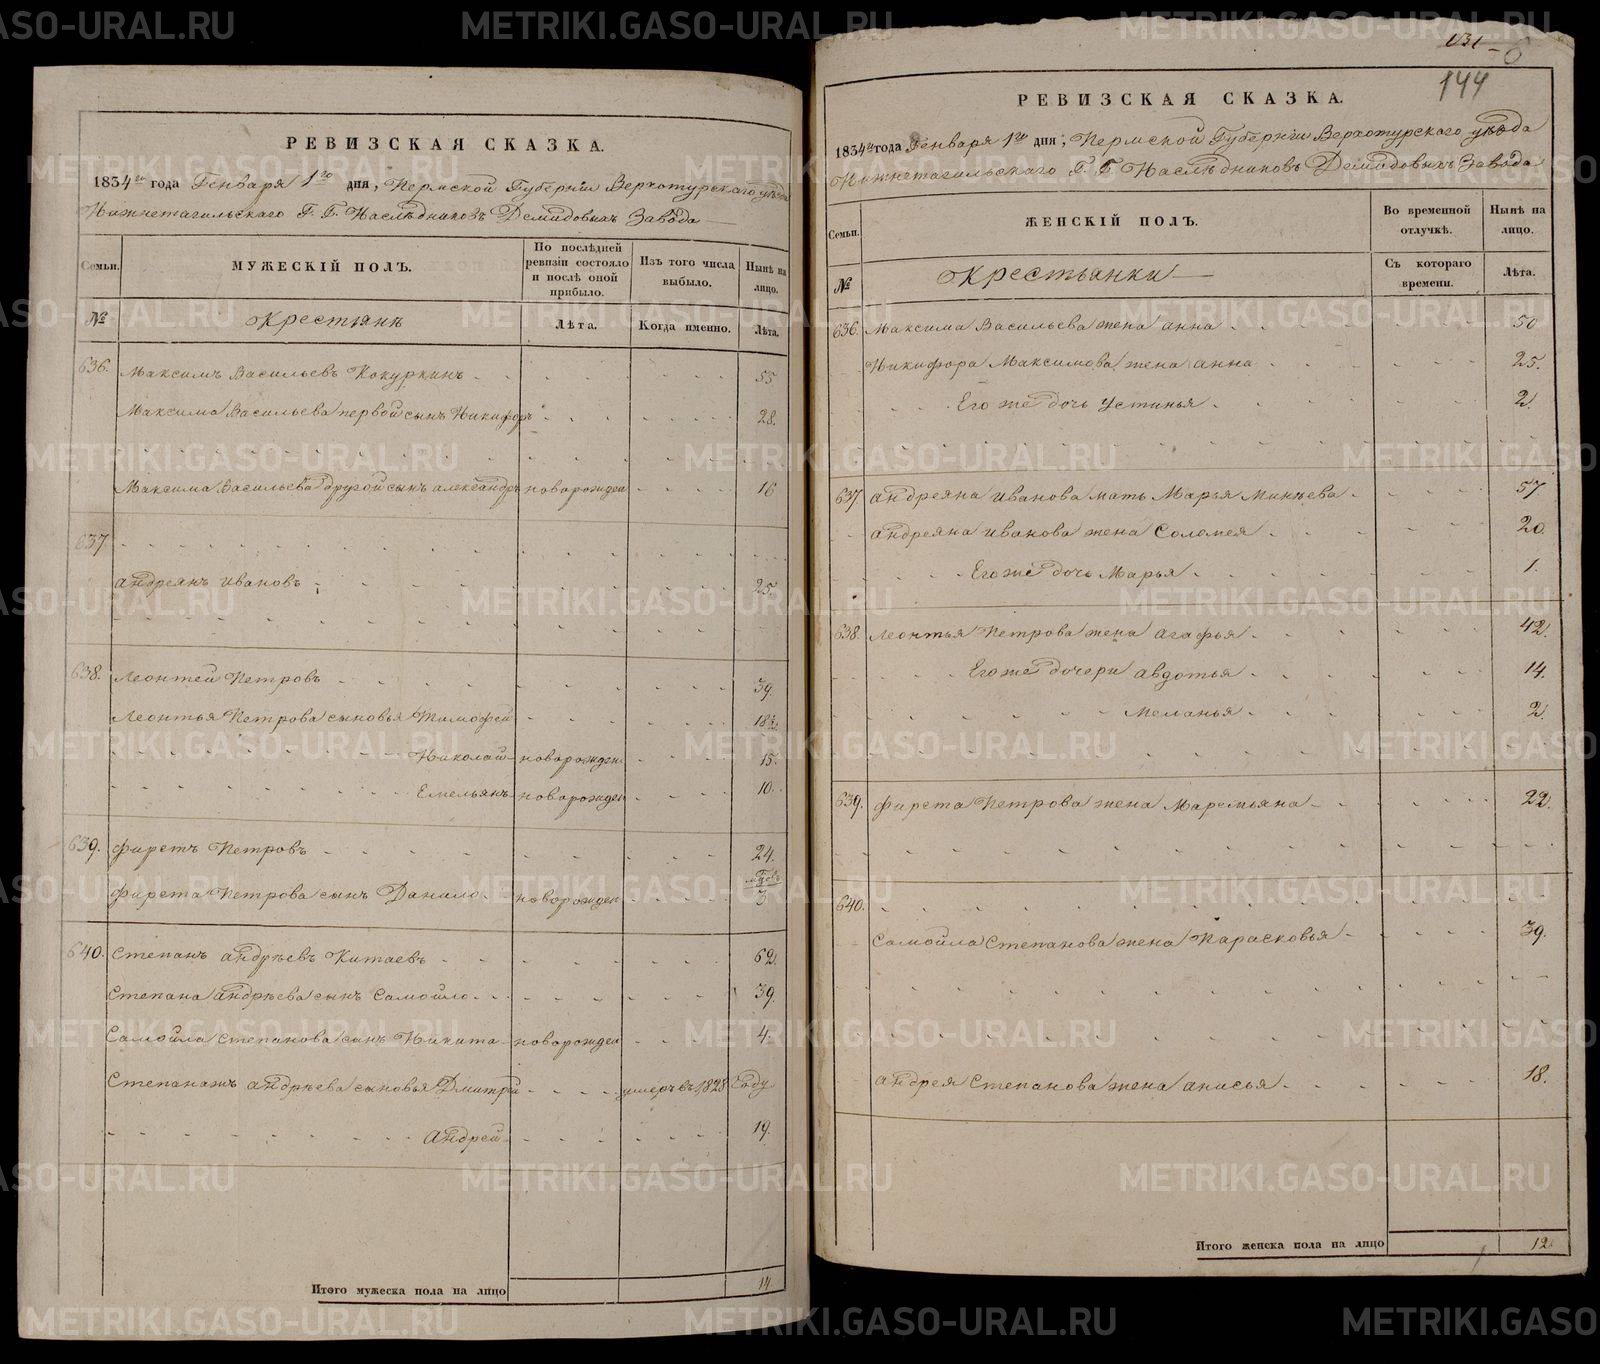 РЕВИЗСКАЯ СКАЗКА.
1834го года Генваря 1го дня, Пермской Губерніи Верхотурскаго уезда
Нижнетагильскаго Г. Г. Наслѣдниковъ Демидовыхъ Завода
Семьи. МУЖЕСКІЙ ПОЛЪ. По послѣдней ревизіи состояло и послѣ оной прибыло. Изъ того числа выбыло. Нынѣ на лицо.
№ Крестьянъ Лѣта. Когда именно. Лѣта.
636. Максимъ Васильевъ Кокуркинъ 55
Максима Васильева первой сынъ Никифоръ 28.
Максима Васильева другой сынъ александръ новорожден 16
637.
андреянъ ивановъ 25.
638. Леонтей Петровъ 39.
Леонтья Петрова сыновья Тимофей 18½
Николай новорожден 15.
Емельянъ новорожден 10.
639. Фирстъ Петровъ 24.
Фирста Петрова сынъ Данило новорожден мцовъ 3
640. Степанъ андрѣевъ Китаевъ 62.
Степана андрѣева сынъ Самойло 39.
Самойла Степанова сынъ Никита новорожден 4.
Степанажъ андрѣева сыновья Дмитрй умеръ въ 1828 Году
андрей 19.
Итого мужеска пола на лицо 14.
131
6
144
РЕВИЗСКАЯ СКАЗКА.
1834го года Генваря 1го дня, Пермской Губерніи Верхотурскаго уезда
Нижнетагильскаго Г. Г. Наслѣдниковъ Демидовыхъ Завода
Семьи. ЖЕНСКІЙ ПОЛЪ. Во временной отлучкѣ. Нынѣ на лицо.
№ Крестьянки Съ котораго времени. Лѣта.
636. Максима Васильева жена анна 50
Никифора Максимова жена анна 25.
Его же дочь Устинья 2.
637. андреяна иванова мать Марья Минѣева 57
андреяна иванова жена Соломея 20.
Его же дочь Марья 1.
638. Леонтья Петрова жена агафья 42.
Его же дочери авдотья 14.
Меланья 2.
639. Фирста Петрова жена Маремьяна 22.
640.
Самойла Степанова жена Парасковья 39.
андрея Степанова жена анисья 18.
Итого женска пола на лицо 12.
METRIKI.GASO-URAL.RU